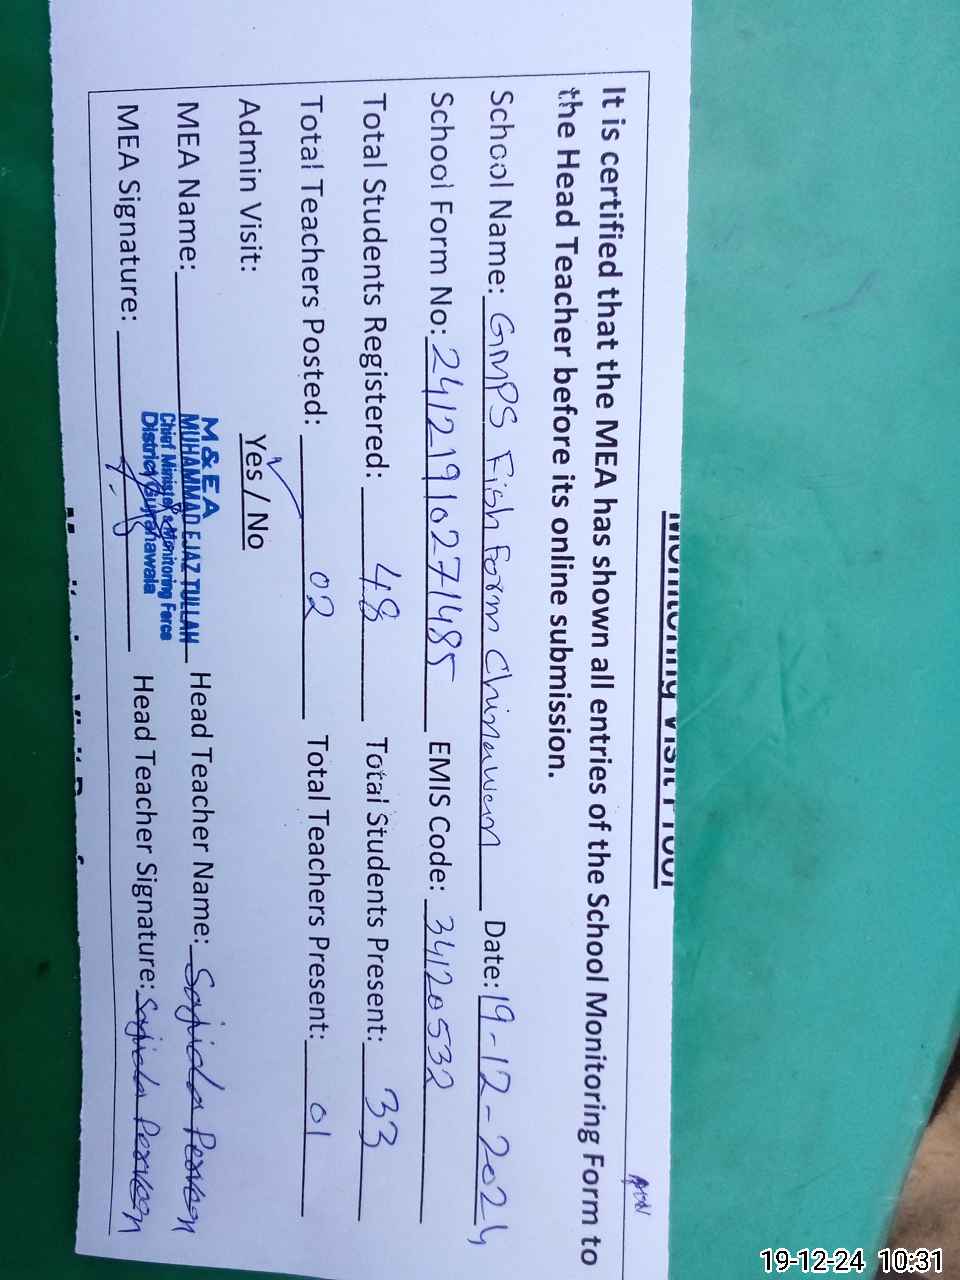 Monitoring Visit Proof
It is certified that the MEA has shown all entries of the School Monitoring Form to
the Head Teacher before its online submission.
School Name: GMPS Fish Form Chinawan Date: 19-12-2024
School Form No: 241219102771485 EMIS Code: 34120532
Total Students Registered: 48 Total Students Present: 33
Total Teachers Posted: 02 Total Teachers Present: 01
Admin Visit: Yes / No
M & E A
MEA Name: MUHAMMAD EJAZ TULLAH Head Teacher Name: Sajida Perveen
Chief Minister's Monitoring Force
District Gujranawala
MEA Signature: Head Teacher Signature: Sajida Perveen
19-12-24 10:31